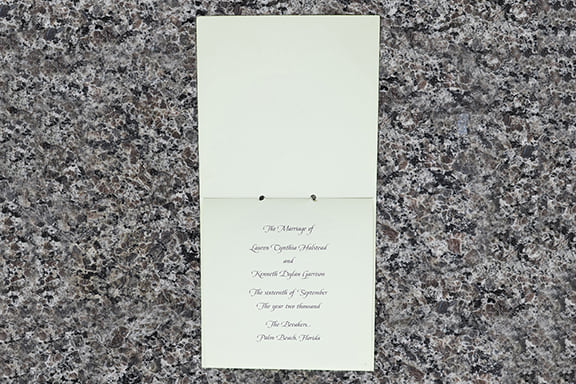 The Marriage of
Lauren Cynthia Halstead
and
Kenneth Dylan Garrison
The sixteenth of September
The year two thousand
The Breakers
Palm Beach, Florida